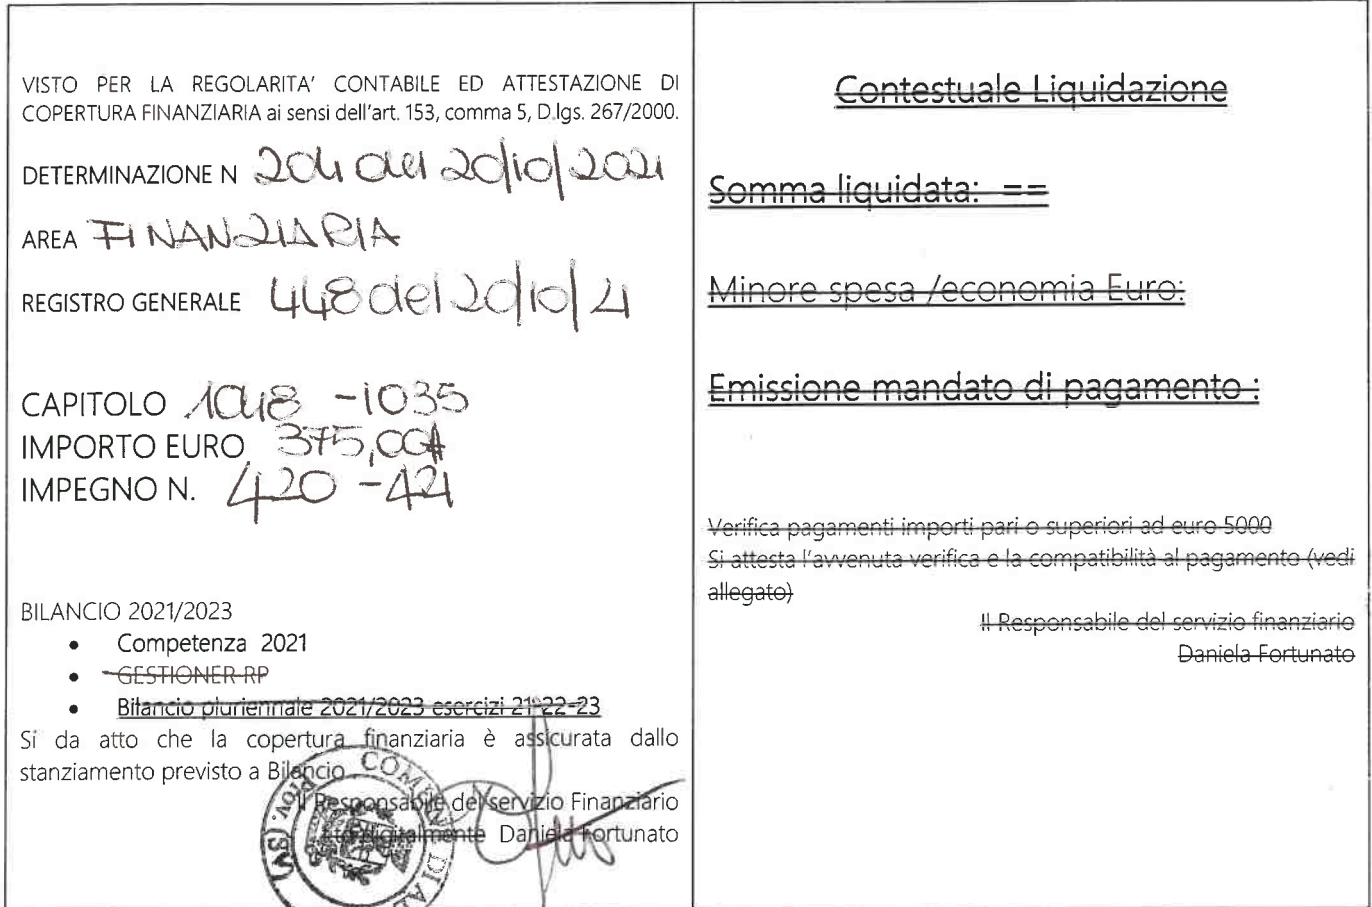 VISTO PER LA REGOLARITA' CONTABILE ED ATTESTAZIONE DI
COPERTURA FINANZIARIA ai sensi dell'art. 153, comma 5, D.lgs. 267/2000.
DETERMINAZIONE N 204 del 20/10/2021
AREA FINANZIARIA
REGISTRO GENERALE 448 del 20/10/21
CAPITOLO 1048 - 1035
IMPORTO EURO 375,00#
IMPEGNO N. 420 - 421
BILANCIO 2021/2023
• Competenza 2021
• GESTIONER RP
• Bilancio pluriennale 2021/2023 esercizi 21-22-23
Si da atto che la copertura finanziaria è assicurata dallo
stanziamento previsto a Bilancio
Il Responsabile del servizio Finanziario
digitalmente Daniela Fortunato
COMUNE DI
Prov. (SV)
Contestuale Liquidazione
Somma liquidata: ==
Minore spesa /economia Euro:
Emissione mandato di pagamento :
Verifica pagamenti importi pari o superiori ad euro 5000
Si attesta l'avvenuta verifica e la compatibilità al pagamento (vedi
allegato)
Il Responsabile del servizio finanziario
Daniela Fortunato